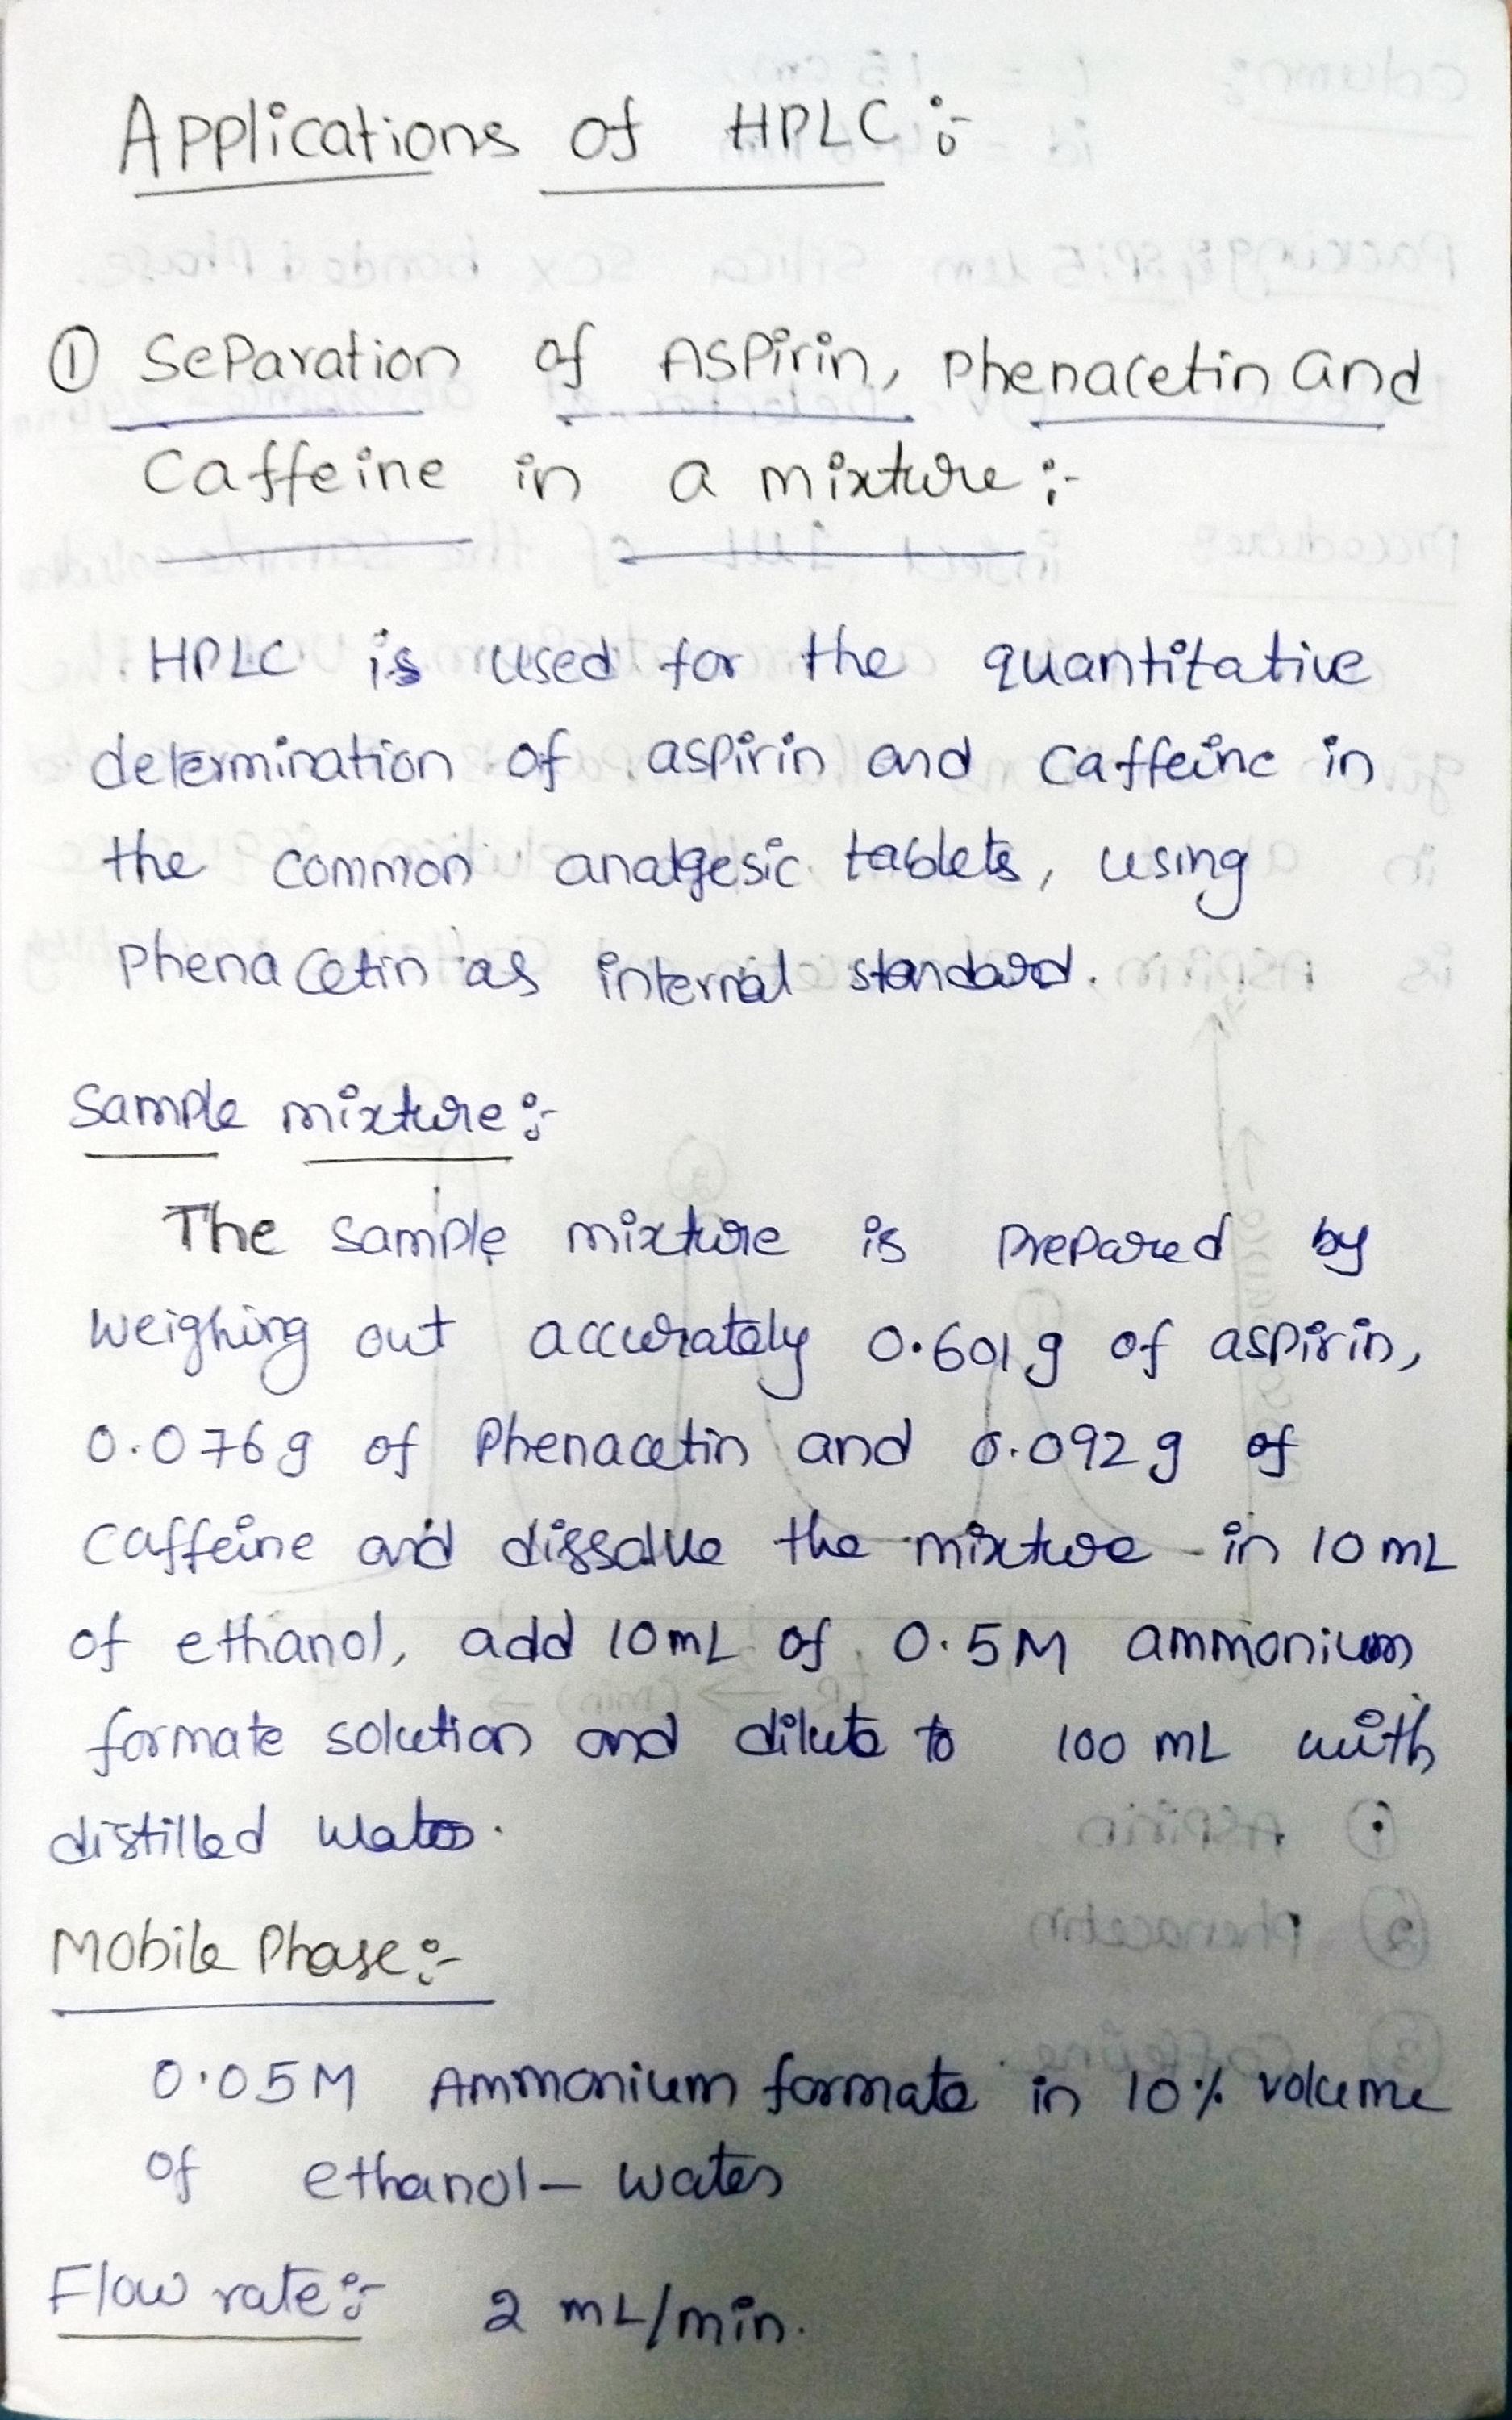 Applications of HPLC :-
① Separation of Aspirin, Phenacetin and
Caffeine in a mixture :-
HPLC is used for the quantitative
determination of aspirin and caffeine in
the common analgesic tablets, using
Phenacetin as internal standard.
Sample mixture :-
The sample mixture is prepared by
weighing out accurately 0.601g of aspirin,
0.076g of Phenacetin and 0.092g of
caffeine and dissolve the mixture in 10 mL
of ethanol, add 10mL of 0.5M ammonium
formate solution and dilute to 100 mL with
distilled water.
Mobile Phase :-
0.05M Ammonium formate in 10% volume
of ethanol - water
Flow rate :- 2 mL/min.